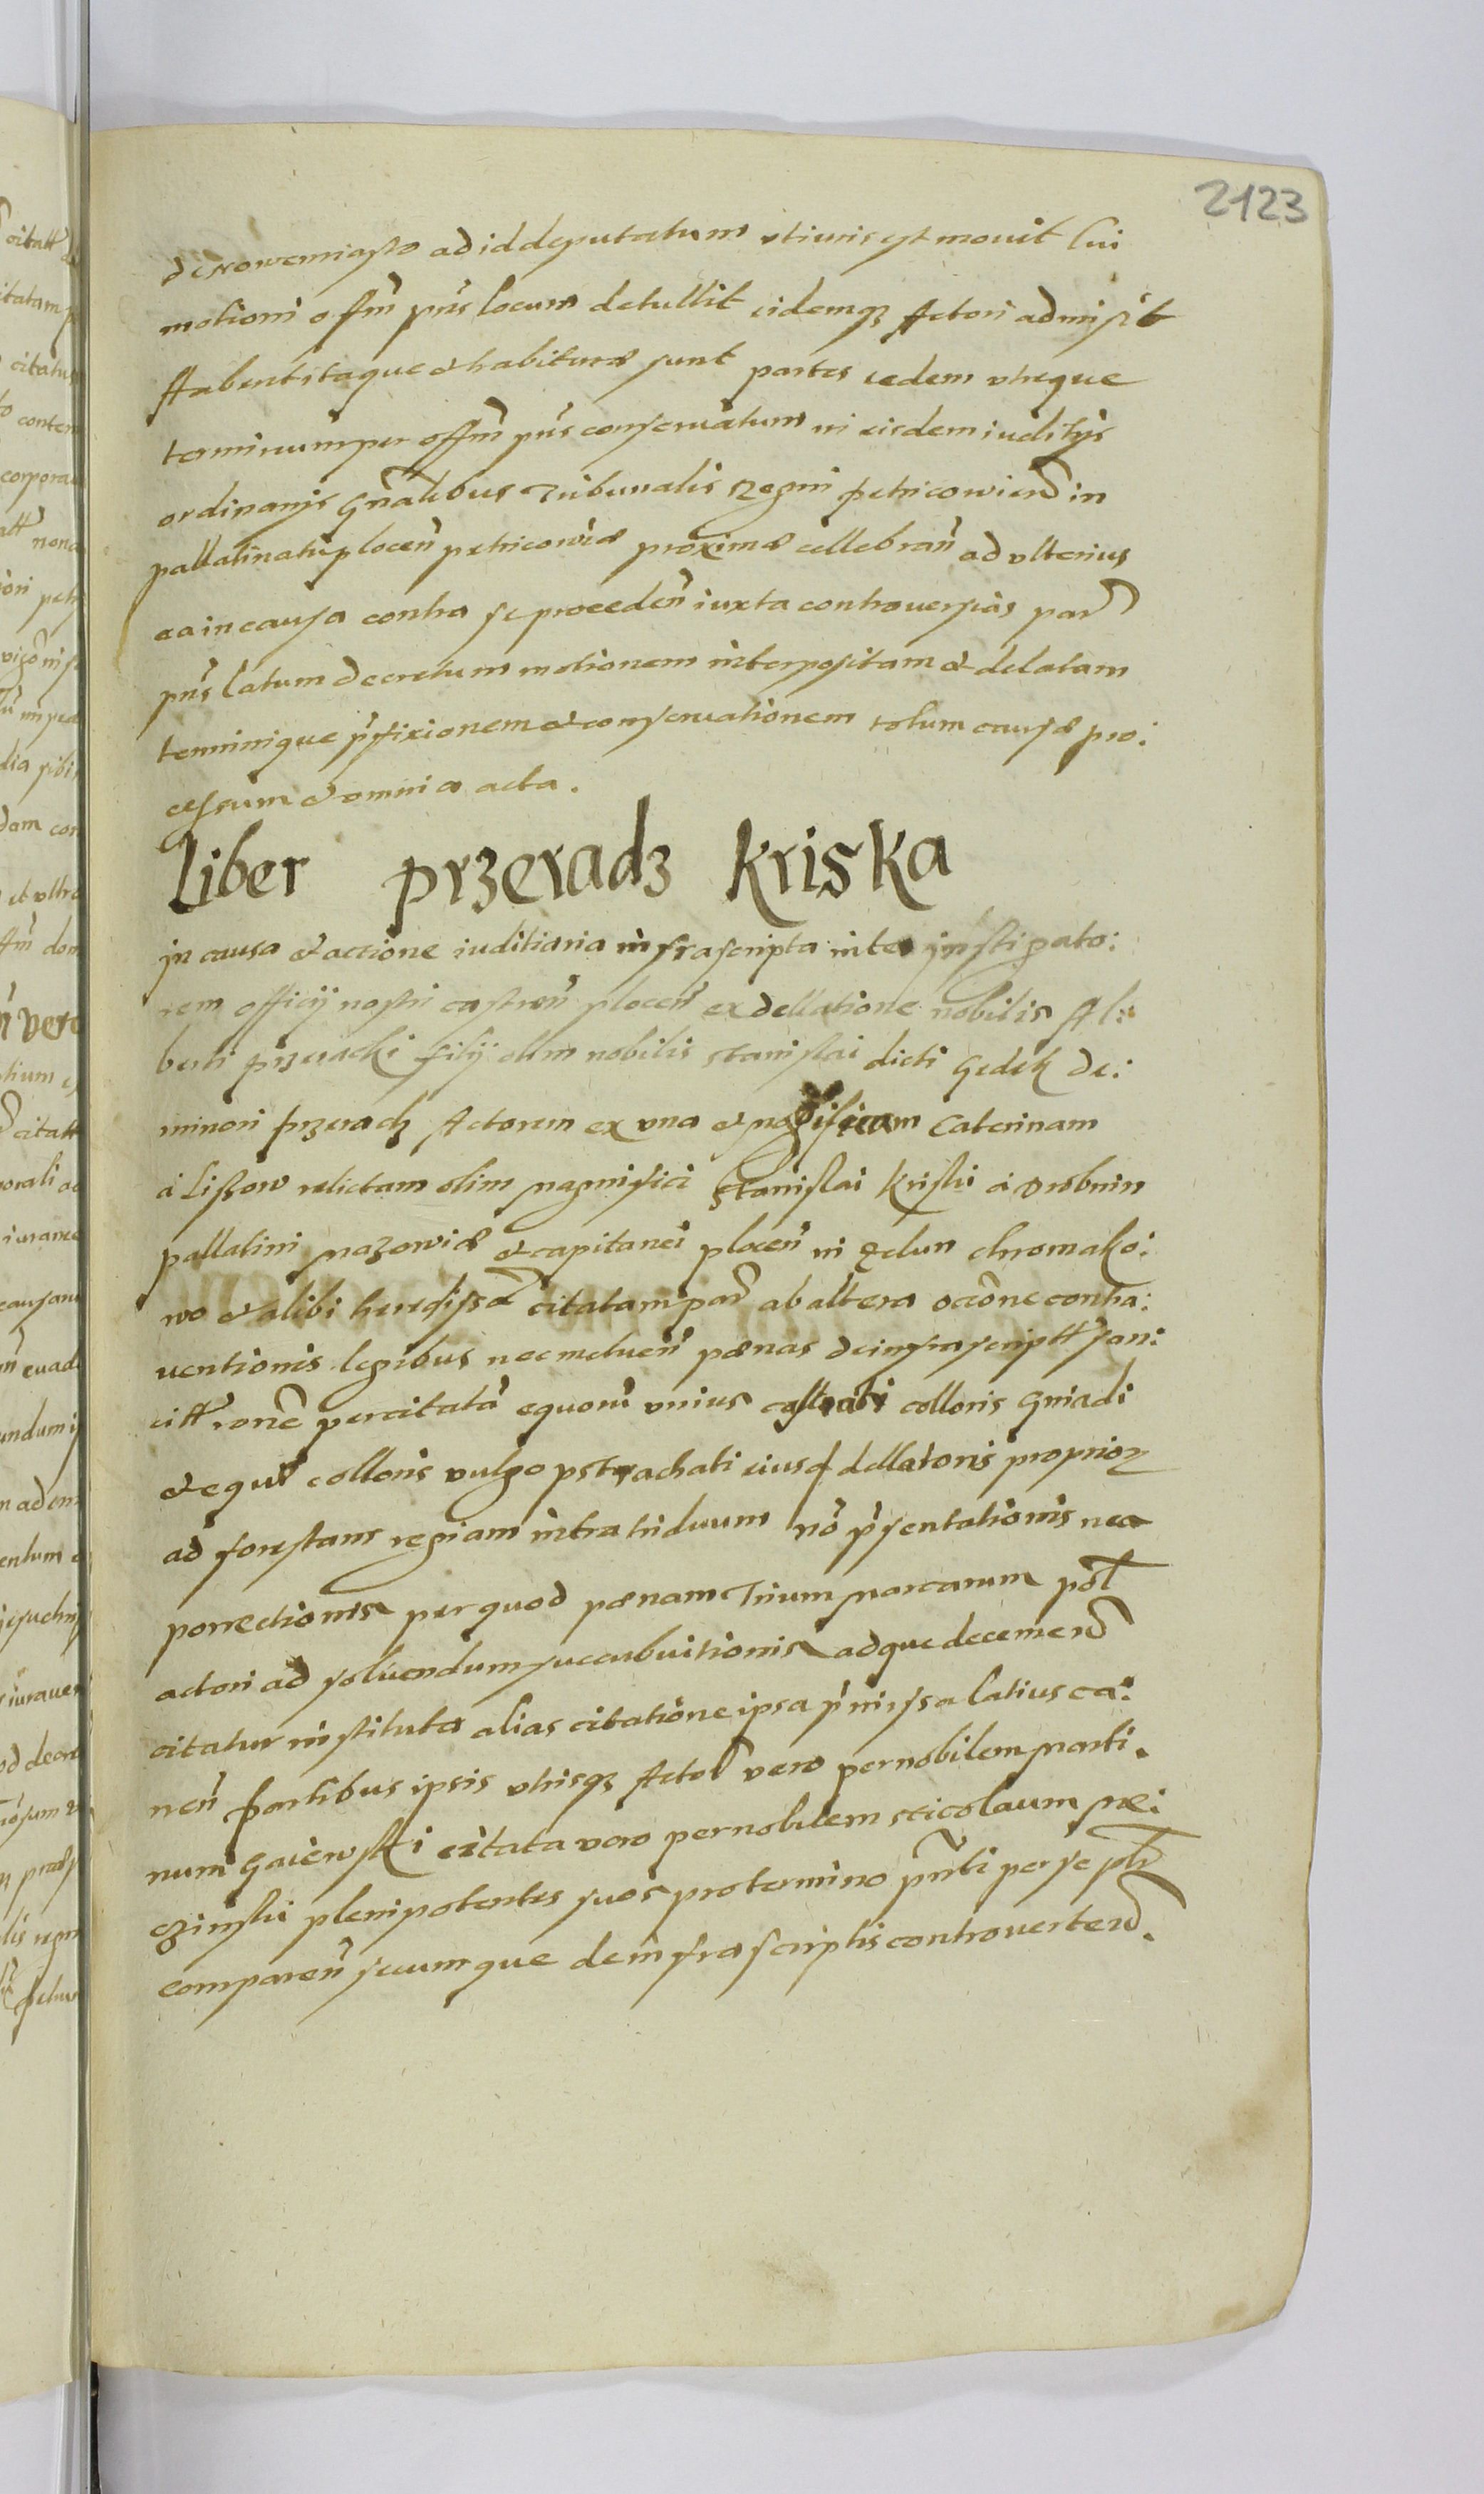 2123
de Nowemiasto ad id deputatum uti iuris est movit Cui
motioni offm pns locum detullit eidemq Actori admisit
Habent itaque et habituræ sunt partes eedem utreque
terminum per offm pns conservatum in eisdem iuditijs
ordinarijs gnalibus Tribunalis Regni petricovien in
pallatinatu plocen petricoviæ proxime cellebran ad ulterius
ea in causa contra se proceden iuxta controversias par
pns latum decretum motionem interpositam et delatam
terminique pfixionem et conservationem totum causæ pro:
cessum et omnia acta.
Liber przeradz Kriska
in causa et actione iuditiaria infrascripta inter instigato:
rem officij nostri castren plocen ex dellatione nobilis Al:
berti przeracki filij olim nobilis Stanislai dicti Gedek de:
minori przeradz Actorem ex una et magnificam Caterinam
a Lissow relictam olim magnifici Stanislai Kriski a Drobnin
pallatini mazoviæ et capitanei plocen in chromako:
wo et alibi heredissa citatam par ab altera occone contra:
ventionis legibus nec metuen pœnas de infrascriptt san:
citt rone percitata equoru unius castrati colloris gniadi
et equæ colloris vulgo pstrachati eiusd dellatoris proprior
ad forestam regiam intra triduum no psentationis nec
porrectionis per quod pœnam Trium marcarum pol
actori ad solvendum succubuitionis adque decernend
citatur instituta alias citatione ipsa pmissa latius ca:
nen Partibus ipsis utrisq Actor vero per nobilem marti.
num Gaiewski citata vero per nobilem Nicolaum
plenipotentes suos pro termino pnti per se ptr
comparen secumque de infrascriptis controverten.